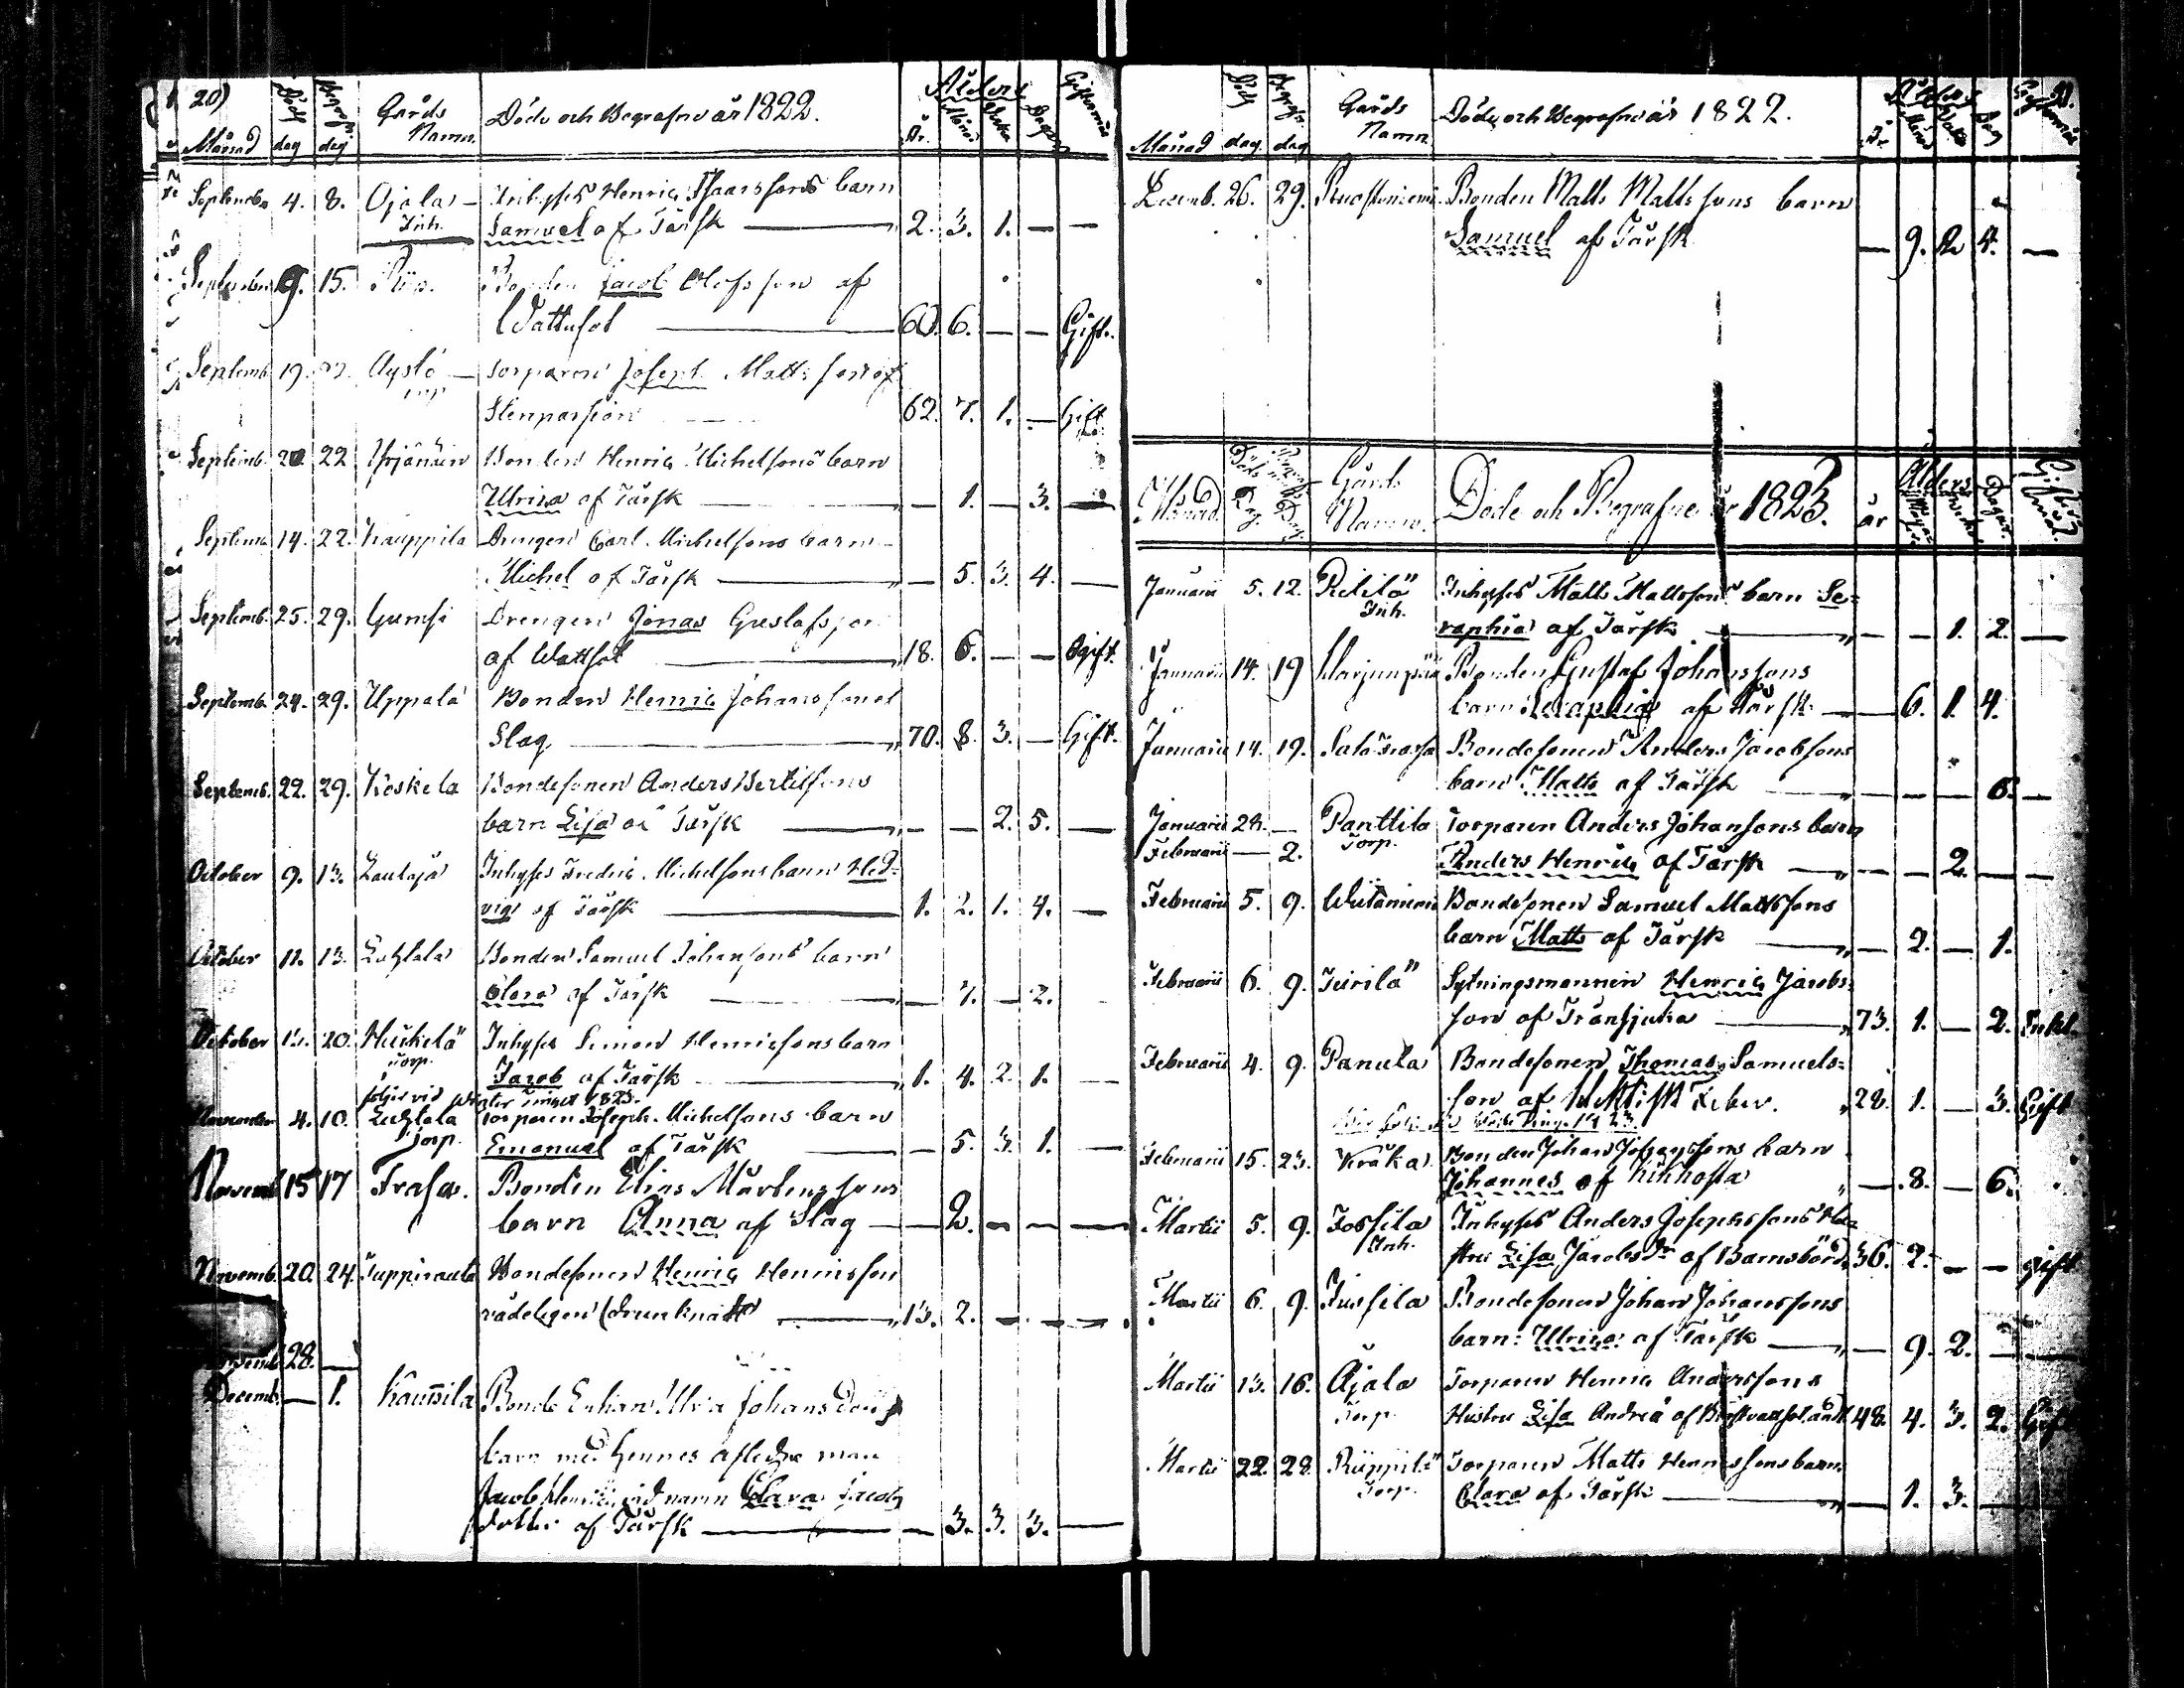 20)
Månad
Död
dag
Begrafn.
dag
Gårds
Namn.
Döde och Begrafne år 1822.
Ålders
År.
Månad
Veka
Dagar
Giftermål
Septemb. 4. 8. Ojala Inhyses Henric Isaacssons barn
Inh. Samuel af Tårsk 2. 3. 1. — —
September 9. 15. Bonden Jacob Olofsson af
Wattusot 60. 6. — — Gift.
Septemb. 19. 22. torparen Joseph Mattsson af
torp
Stenpassion 62. 7. 1. — Gift
Septemb. 20. 22 Yrjänäin Bonden Henric Michelsons barn
Ulrica af Tårsk — 1. — 3. —
Septemb. 14. 22. Kauppila Drengen Carl Michelsons barn
Michel af Tårsk — 5. 3. 4. —
Septemb. 25. 29. Gumsi Drengen Jonas Gustafsson
af Wattsot 18. 6. — — Ogift.
Septemb. 24. 29. Uppala Bonden Henric Johansson af
Slag 70. 8. 3. — Gift.
Septemb. 22. 29. Koskela Bondesonen Anders Bertilsons
barn Lisa af Tårsk — — 2. 5. —
October 9. 13. Inhyses Fredric Michelsons barn Hed-
vig af Tårsk 1. 2. 1. 4. —
October 11. 13. Bonden Samuel Johansons barn
Clara af Tårsk — 7. — 2.
October 13. 20. Heikkilä Inhyses Simon Henricsons barn
torp. Jacob af Tårsk 1. 4. 2. 1. —
följer vid winter tinget 1823.
November 4. 10. torparen Joseph Michelsons barn
torp. Emanuel af Tårsk — 5. 3. 1. —
Novemb. 15 17 Frasa. Bonden Elias Mårtenssons
barn Anna af Slag — 2. — — —
Novemb. 20. 24. Tuppirauta Bondesonen Henric Henricsson
vådeligen drunknat 13. 2. — — —
Novemb. 28. —
Decemb. — 1. Kaunsila Bonde Enkan Ulrica Johansdotters
barn med hennes aflidne man
Jacob Henricsson vid namn Clara Jacobs
dotter af Tårsk — 3. 3. 3. —
21.
Månad
Död
dag.
Begrafn.
dag
Gårds
Namn.
Döde och Begrafne år 1822.
Ålders
År
Månad
Veka
Dag
Giftermål
Decemb. 26. 29. Ruostoniemi Bonden Matts Mattssons barn
Samuel af Tårsk — 9. 2 4. —
Månad.
Död
Dag.
Begrafn.
Dag
Gårds
Namn.
Döde och Begrafne år 1823.
Ålders
år
Månad
Veka
Dagar.
Giftermål.
Januarii 5. 12. Pitilä Inhyses Matts Mattssons barn Se-
Inh. raphia af Tårsk — — 1. 2. —
Januarii 14. 19 Harjunpää Bonden Gustaf Johanssons
barn Seraphia af Tårsk — 6. 1. 4.
Januarii 14. 19. Bondesonen Anders Jacobsons
barn Matts af Tårsk — — — 6. —
Januarii 28. — Panttila Torparen Anders Johansons barn
Februarii — 2. Torp. Anders Henric af Tårsk — — 2. — —
Februarii 5. 9. Wiitaniemi Bondesonen Samuel Mattssons
barn Matts af Tårsk — 2. — 1.
Februarii 6. 9. Juirilä Sytningsmannen Henric Jacobs-
son af Trånsjuka 73. 1. — 2. Enkl.
Februarii 4. 9. Panula Bondesonen Thomas Samuels-
son af Hektisk Feber. 28. 1. — 3. Gift
Februarii 15. 23. Kråka Bonden Johan Josephssons barn
Johannes af Kikhosta — 8. — 6.
Martii 5. 9. Jossila Inhyses Anders Josephssons Hu-
Inh. stru Lisa Jacobsdr af Barnsbörd 36. 2. — — gift
Martii 6. 9. Jussila Bondesonen Johan Johanssons
barn Ulrica af Tårsk — 9. 2. — —
Martii 13. 16. Äjala Torparen Henric Anderssons
Torp. Hustru Lisa 48. 4. 3. 2. Gift
Martii 22. 28. Torparen Matts Henricssons barn
Torp. Clara af Tårsk — 1. 3. —